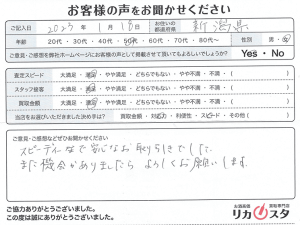 お客様の声をお聞かせください
ご記入日 2023年 1月 18日 お住いの都道府県 新潟県
年齢 20代・30代・40代・50代・60代・70代・80代～ 性別 男・女
ご意見・ご感想を弊社ホームページにお客様の声として掲載させて頂いてもよろしいでしょうか? Yes・No
査定スピード 大満足・満足・やや満足・どちらでもない・やや不満・不満・( )
スタッフ接客 大満足・満足・やや満足・どちらでもない・やや不満・不満・( )
買取金額 大満足・満足・やや満足・どちらでもない・やや不満・不満・( )
当店をお選びいただきました決め手は? 買取金額・対応力・利便性・スピード・その他( )
ご意見・ご感想などぜひお聞かせください。
スピーディーなで安心なお取り引きでした。
また機会がありましたら よろしくお願いします。
ご協力ありがとうございました。
この度は誠にありがとうございました。
お酒高価 買取専門店
リカスタ